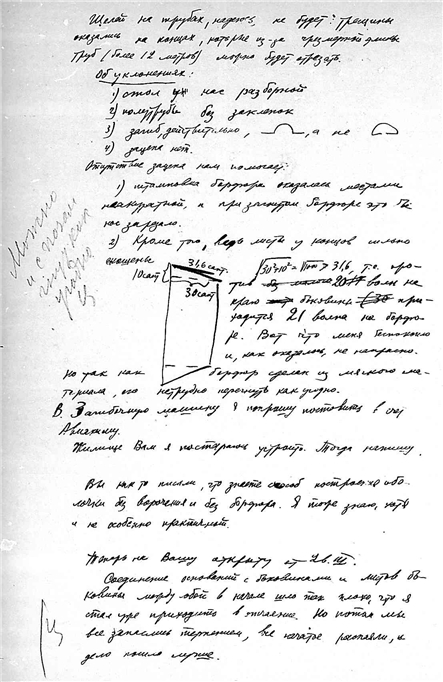 Щелей на трубах, надеюсь, не будет: трещины
оказались на концах, которые из-за чрезмерной длины
труб (более 12 метров) можно будет отрезать.
Об уклонениях:
1) стол у нас разборной
2) полутрубы без заклепок
3) загиб, действительно, , а не
4) зацепа нет.
Отсутствие зацепа нам помогает:
1) штамповка бордюра оказалась местами
неаккуратной, и при загнутом бордюре это
нас зарезало.
2) Кроме того, ведь листы у концов сильно
скошены
10 сант
31,6 сант.
30 сант
> 31,6, т.е. про-
тив волн на
краю боковины при-
ходится 21 волна на бордю-
ре. Вот что меня беспокоило
и, как оказалось, не напрасно.
Но так как бордюр сделан из мягкого ма-
териала, его нетрудно перегнуть как угодно.
В. Загибочную машину я попрошу поставить в счет
Авиахиму.
Жилище Вам я постараюсь устроить. Тогда напишу.
Можно
и с
Ц
Вы как-то писали, что знаете способ построения обо-
лочки без ворочения и без бордюра. Я тоже знаю, хотя
и не особенно практичной.
Теперь на Вашу открытку от
Соединение оснований с боковинами и листов бо-
ковины между собой в начале шло так плохо, что я
стал уже приходить в отчаяние. Но потом мы
все запаслись терпением, все начатое распаяли, и
дело пошло лучше.